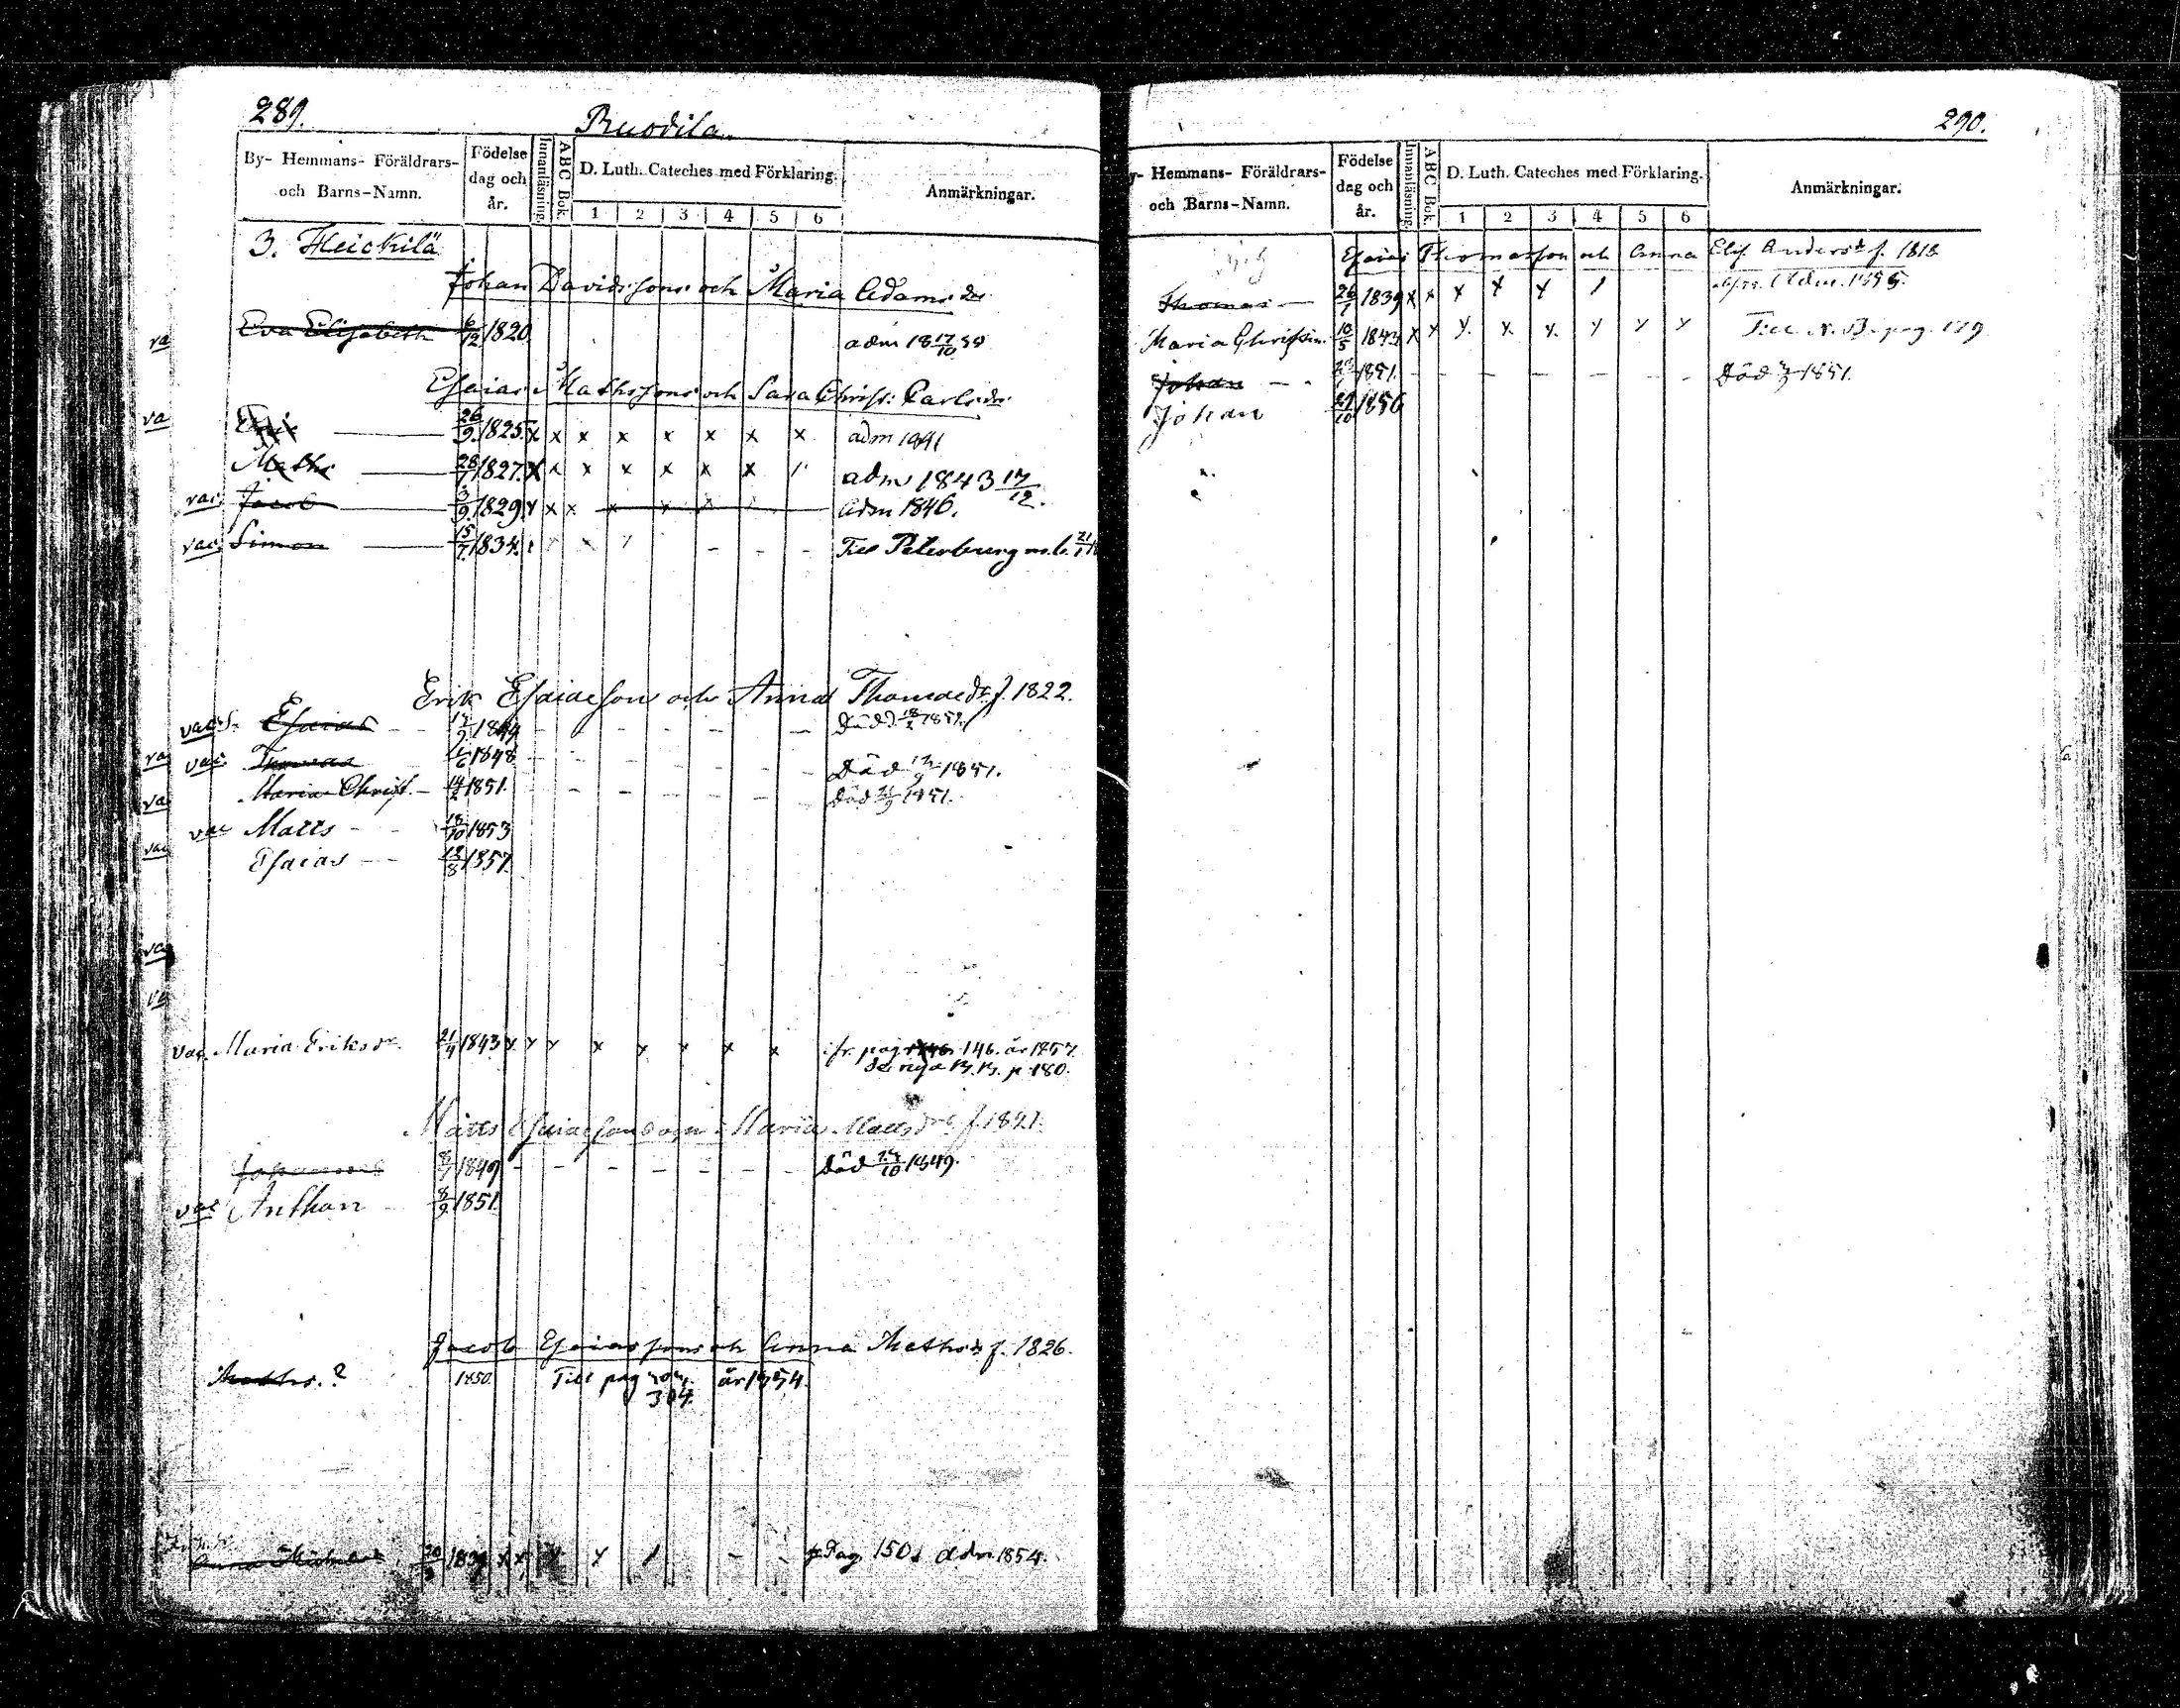 289.
Ruodila.
By- Hemmans- Föräldrars- och Barns-Namn.
Födelse dag och år.
Innanläsning.
ABC Bok.
D. Luth. Cateches med Förklaring.
1 2 3 4 5 6
Anmärkningar.
3. Heickilä
Johan Davidssons och Maria Adams dr
va
Eva Elisabeth 6/12 1820 adm 18 17/10 38
Esaias Mathssons och Sara Christ: Carls dr
va
Eric 26/9 1825. x x x x x x x x adm 1841
Maths 28/7 1827. x x x x x x x / adm 1843 17/12.
vac. Jacob 3/9 1829 x x x x x x adm 1846.
vac. Simon 15/7 1834. Till Peterburg m.b. 21/1
Erik Esaiaeson och Anna Thomaedr f. 1822.
vac. Esaias 1844 Död 18/2 1851.
va vac. Thomas 1/6 1848 Död 1851.
Maria Christ. 14/2 1851. Död 1851.
va
vac Matts 18/10 1853
vac
Esaias 12/8 1857.
vac
va
vac. Maria Eriksdr. 21/4 1843 x x x x x x x x fr. pag 146. år 1857.
se nya B.B. p 180.
Matts Esaiaeson och Maria Mattsdr f. 1821.
Johannes 8/7 1849 Död 1849.
vac Anthon 8/9 1851.
Jacob Esaiassons och Anna Mathsdr f. 1826.
Maths. ? 1850. Till pag 304. år 1854.
304.
Anna 1839 x x x x / Pag. 150, adm 1854.
290.
By- Hemmans- Föräldrars- och Barns-Namn.
Födelse dag och år.
Innanläsning.
ABC Bok.
D. Luth. Cateches med Förklaring.
1 2 3 4 5 6
Anmärkningar.
Esaias Thomasson och Anna Elis. Andersdr f. 1818
Thomas 26/7 1839 x x x x x / Adm. 1855.
Maria Christin. 10/5 1843 x x x x x x x x Till N. B. pag. 179
Johan 1851. Död 1851.
Johan 27/10 1856